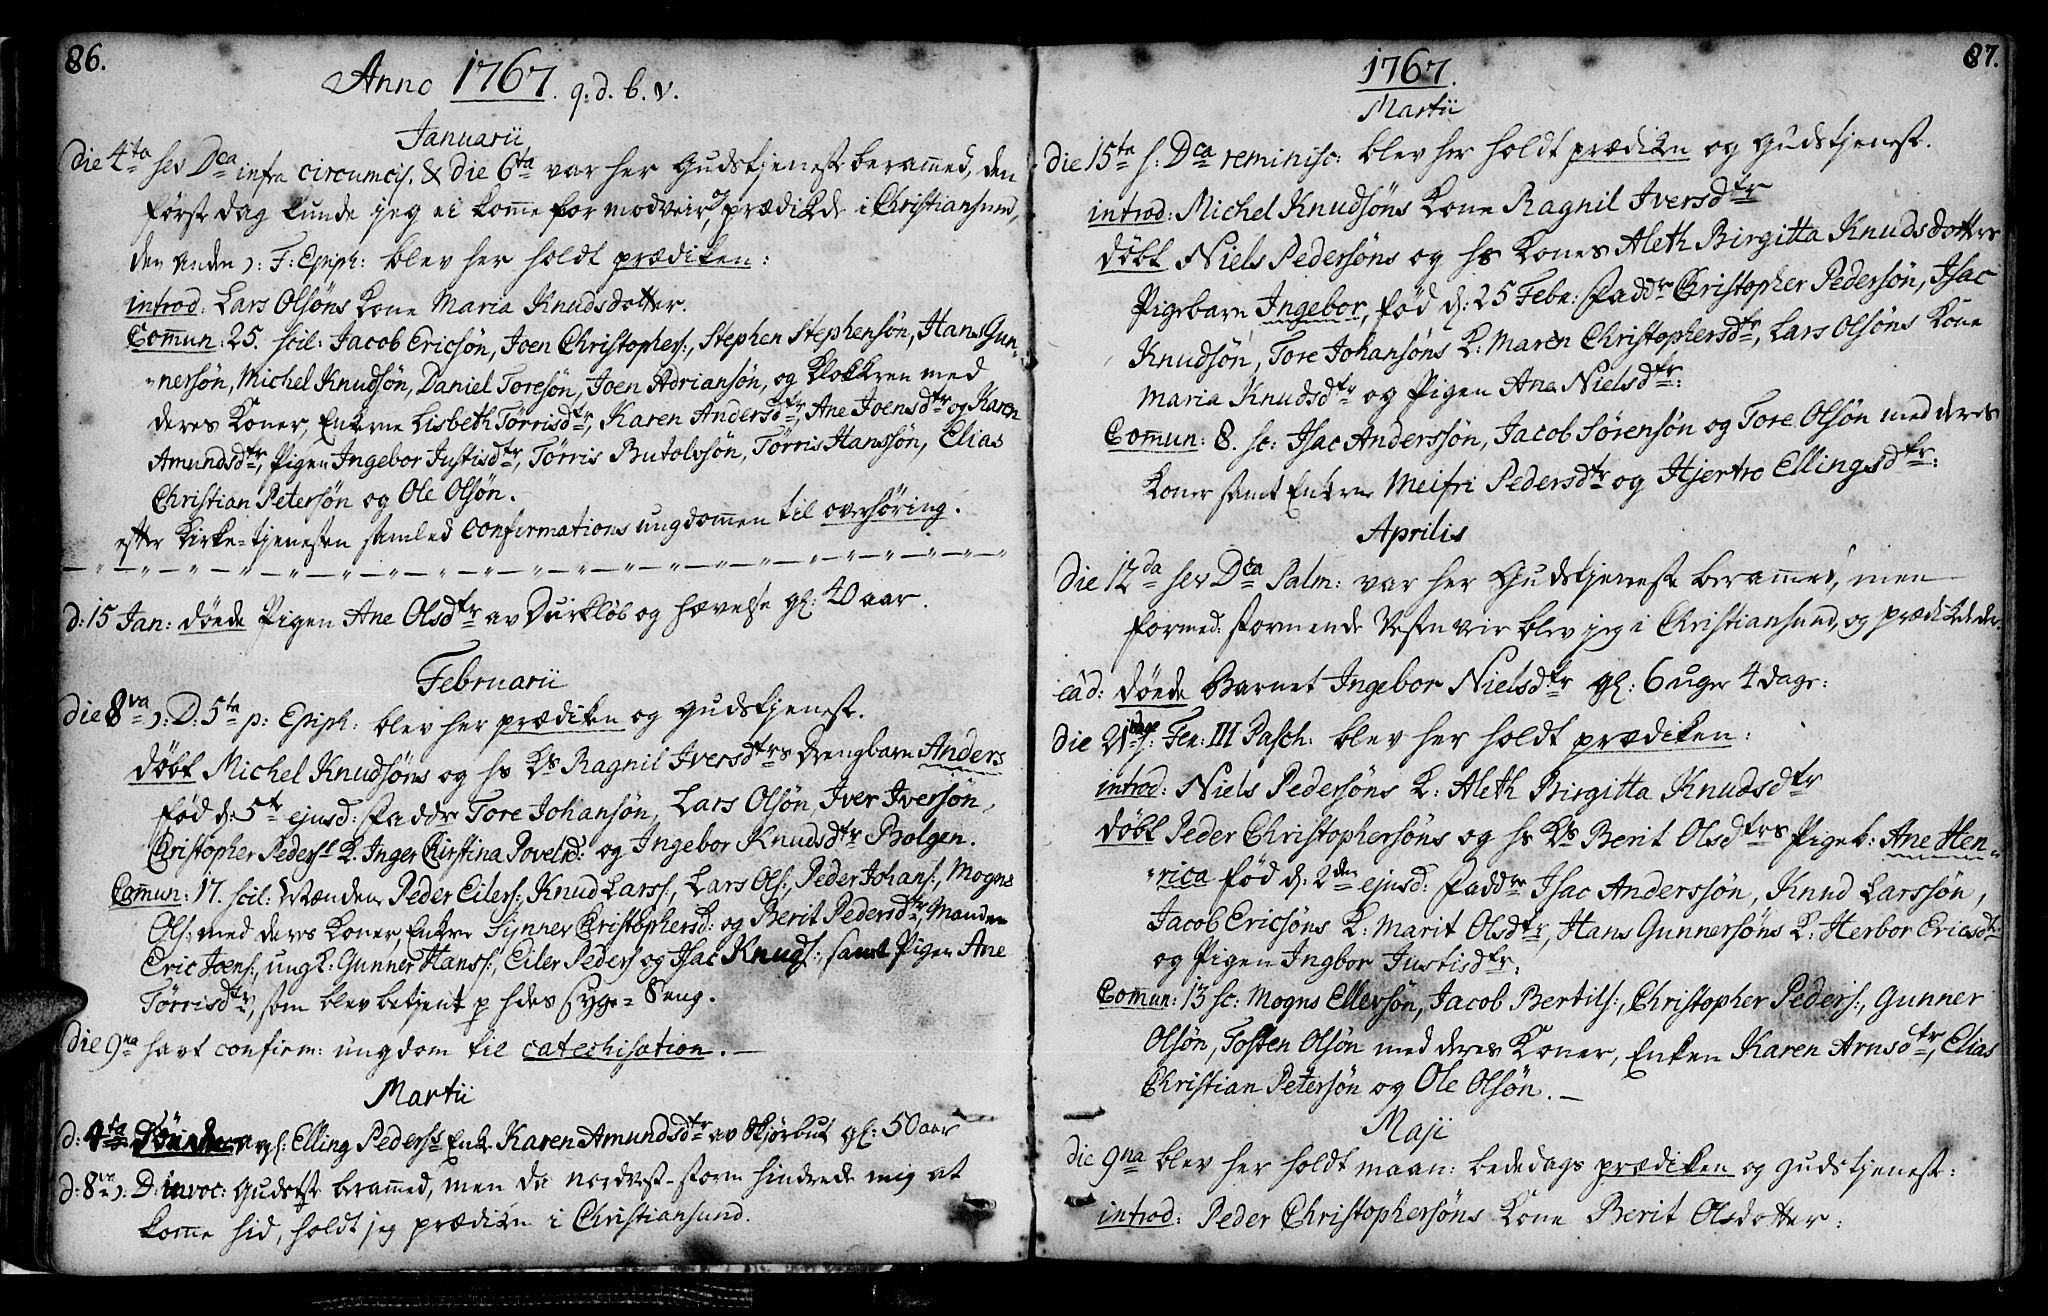 86.
Anno 1767. q. d. b. v.
Januarii
die 4ta sev Dca infra circumcis. & die 6ta var her Gudstjeneste berammed, den
første dag kunde jeg ei komme for modveir, prædikede i Christiansund,
den anden ɔ: F: Epiph: blev her holdt prædiken:
introd: Lars Olsøns Kone Maria Knudsdotter.
Comun: 25. scil: Jacob Ericsøn, Joen Christophers:, Stephen Stephensøn, Hans Gun-
nersøn, Michel Knudsøn, Daniel Toresøn, Joen Adriansøn, og Klokkren med
deres Koner, Enkerne Lisbeth Tørrisdtr, Karen Andersdtr, Ane Joensdtr og Karen
Amundsdtr, Pigen Ingebor Justisdtr, Tørris Butolvsøn, Tørris Hanssøn, Elias
Christian Petersøn og Ole Olsøn.
efter Kirke-tjenesten samled confirmations ungdommen til overhøring.
d: 15 Jan: døede Pigen Ane Olsdtr av Durkløb og hævelse gl: 40 aar.
Februarii
die 8va ɔ: D: 5ta p: Epiph: blev her prædiken og gudstjenest.
døbt Michel Knudsøns og hs Ks Ragnil Iversdtrs Drengbarn Anders
fød d: 5te ejusd: Faddr Tore Johansøn, Lars Olsøn, Iver Iversøn,
Christopher Peders: K. Inger Kirstina Povelsd: og Ingebor Knudsdtr Bolgen.
Comun: 17. scil: Mændene Peder Eilers:, Knud Larss:, Lars Ols:, Peder Johans:, Mogns
Ols: med deres Koner, Enkene Synner Christophersd: og Berit Pedersdtr, Manden
Eric Joens:, ung K: Gunner Hanss:, Eiler Peders og Isac Knuds:, samt Pigen Ane
Tørrisdtr, som blev betjent p hdes Syge-Seng.
die 9na havt confirm: ungdom til catechisation.
Martii
d: 4ta gl: Elling Peders: Enke Karen Amundsdtr av Skjørbut gl: 50 aar
d: 8va ɔ: D: invoc: Gudstst berammed, men da nordvest-storm hindrede mig at
komme hid, holdt jeg prædiken i Christiansund.
87.
1767.
Martii
die 15ta s: Dca reminisc: blev her holdt prædiken og gudstjenest.
introd: Michel Knudsøns Kone Ragnil Iversdtr
døbt Niels Pedersøns og hs Kones Aleth Birgitta Knudsdotters
Pigebarn Ingebor, fød d: 25 Febr: Faddr Christopher Pedersøn, Isac
Knudsøn, Tore Johansøns K: Maren Christophersdtr, Lars Olsøns Kone
Maria Knudsdtr og Pigen Ane Nielsdtr:
Comun: 8. sc: Isac Anderssøn, Jacob Sørensøn og Tore Olsøn med deres
Koner samt Enkerne Meifri Pedersdtr og Hjertro Ellingsdtr:
Aprilis
die 12da sev Dca Palm: var her Gudstjeneste berammed, men
formed: stormende Vesten veir blev jeg i Christiansund, og prædikede der.
ead: døede Barnet Ingebor Nielsdtr gl: 6 uger 4 dage:
die 21 s: Fer: III Pasch: blev her holdt prædiken:
introd: Niels Pedersøns K: Aleth Birgitta Knudsdtr
døbt Peder Christophersøns og hs Ks Berit Olsdtrs Pigeb: Ane Hen-
rica fød d: 2den ejusd: Faddr Isac Anderssøn, Knud Larssøn,
Jacob Ericsøns K: Marit Olsdtr, Hans Gunnersøns K: Herbor Ericsdtr
og Pigen Ingbor Justisdtr:
Comun: 13 sc: Mogns Ellersøn, Jacob Bertils:, Christopher Peders:, Gunner
Olsøn, Tosten Olsøn med deres Koner, Enken Karen Arnsdtr, Elias
Christian Petersøn og Ole Olsøn.
Maji
die 9na blev her holdt maan: bededags prædiken og gudstjeneste:
introd: Peder Christophersøns Kone Berit Olsdotter: